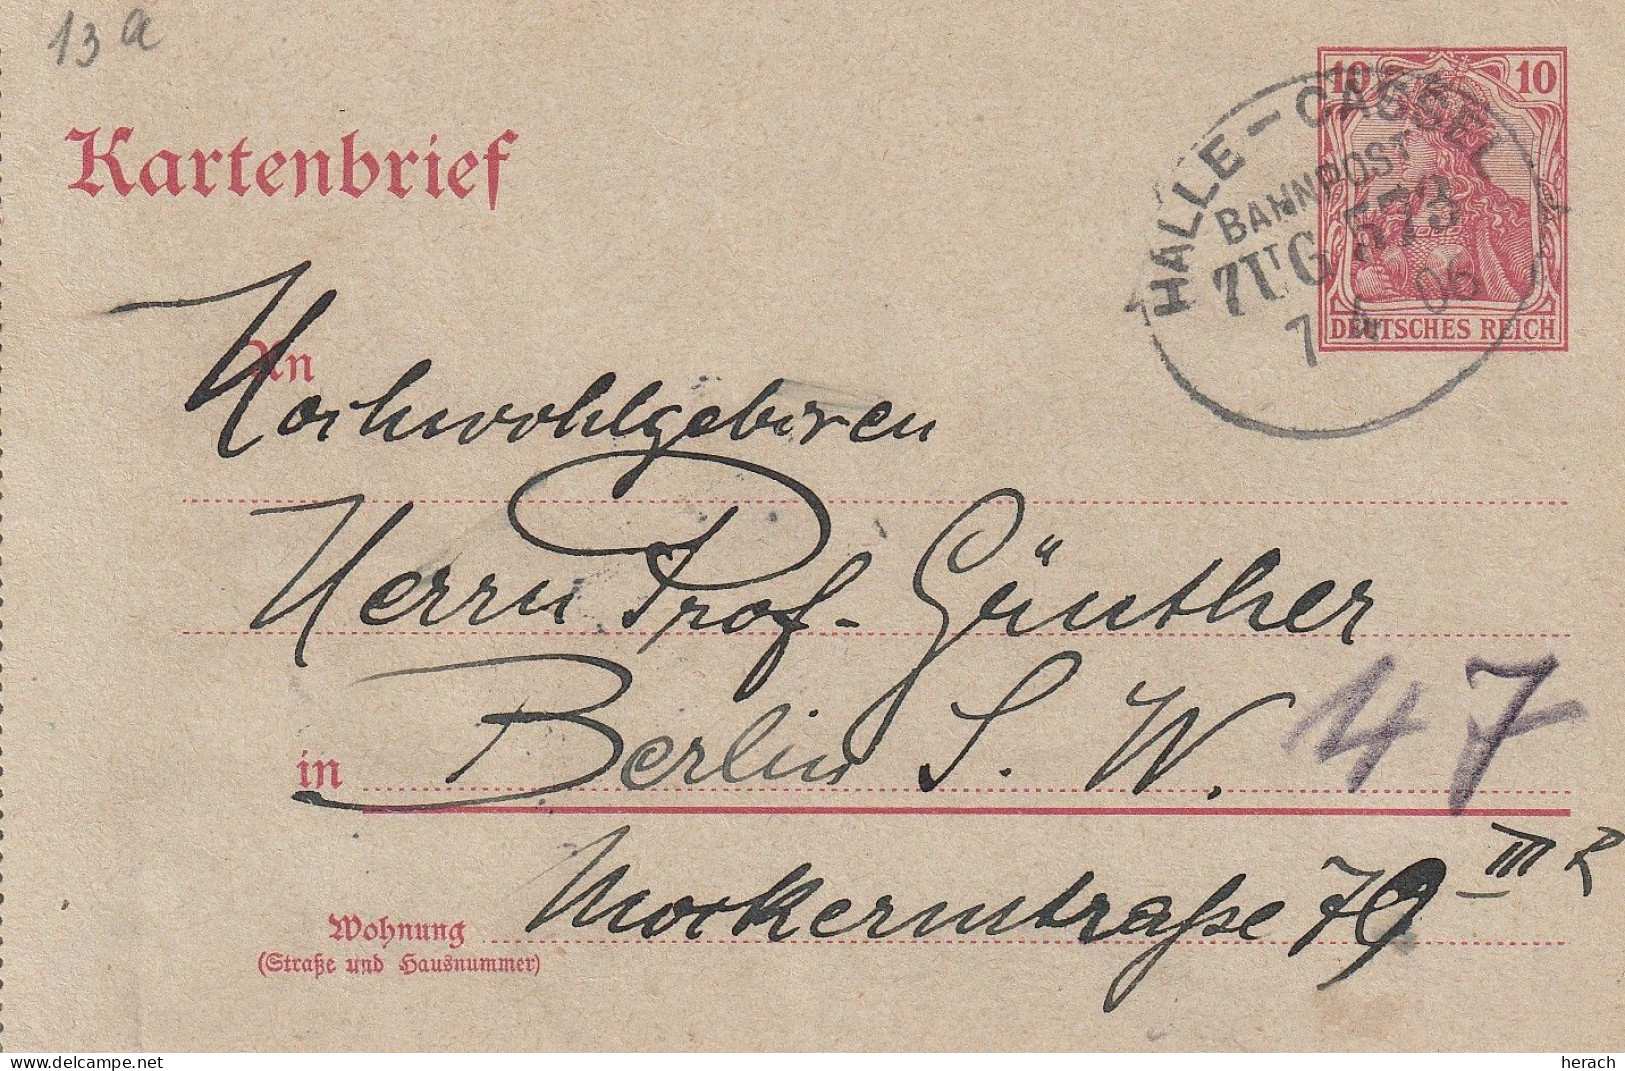 13 a
Kartenbrief
10 10
DEUTSCHES REICH
HALLE - CASSEL
BAHNPOST
ZUG 573
7 4 06
An
Hochwohlgeboren
Herrn Prof. Günther
in Berlin S. W. 47
Wohnung Mockernstraße 79 III R
(Straße und Hausnummer)
delcampe.net
herach